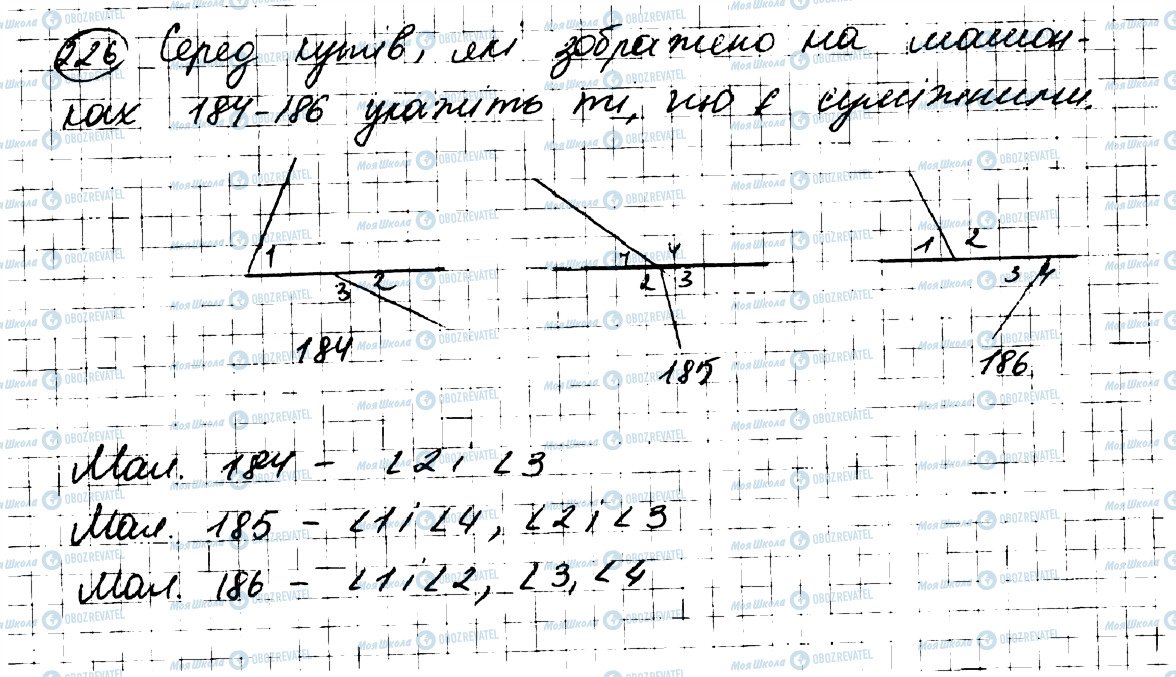 226 Серед кутів, які зображено на малюн-
ках 184-186 укажіть ті, що є суміжними.
1
3 2
184
1 4
2 3
185
1 2
3 4
186
Мал. 184 - ∠2 і ∠3
Мал. 185 - ∠1 і ∠4, ∠2 і ∠3
Мал. 186 - ∠1 і ∠2, ∠3, ∠4
МояШкола OBOZREVATEL